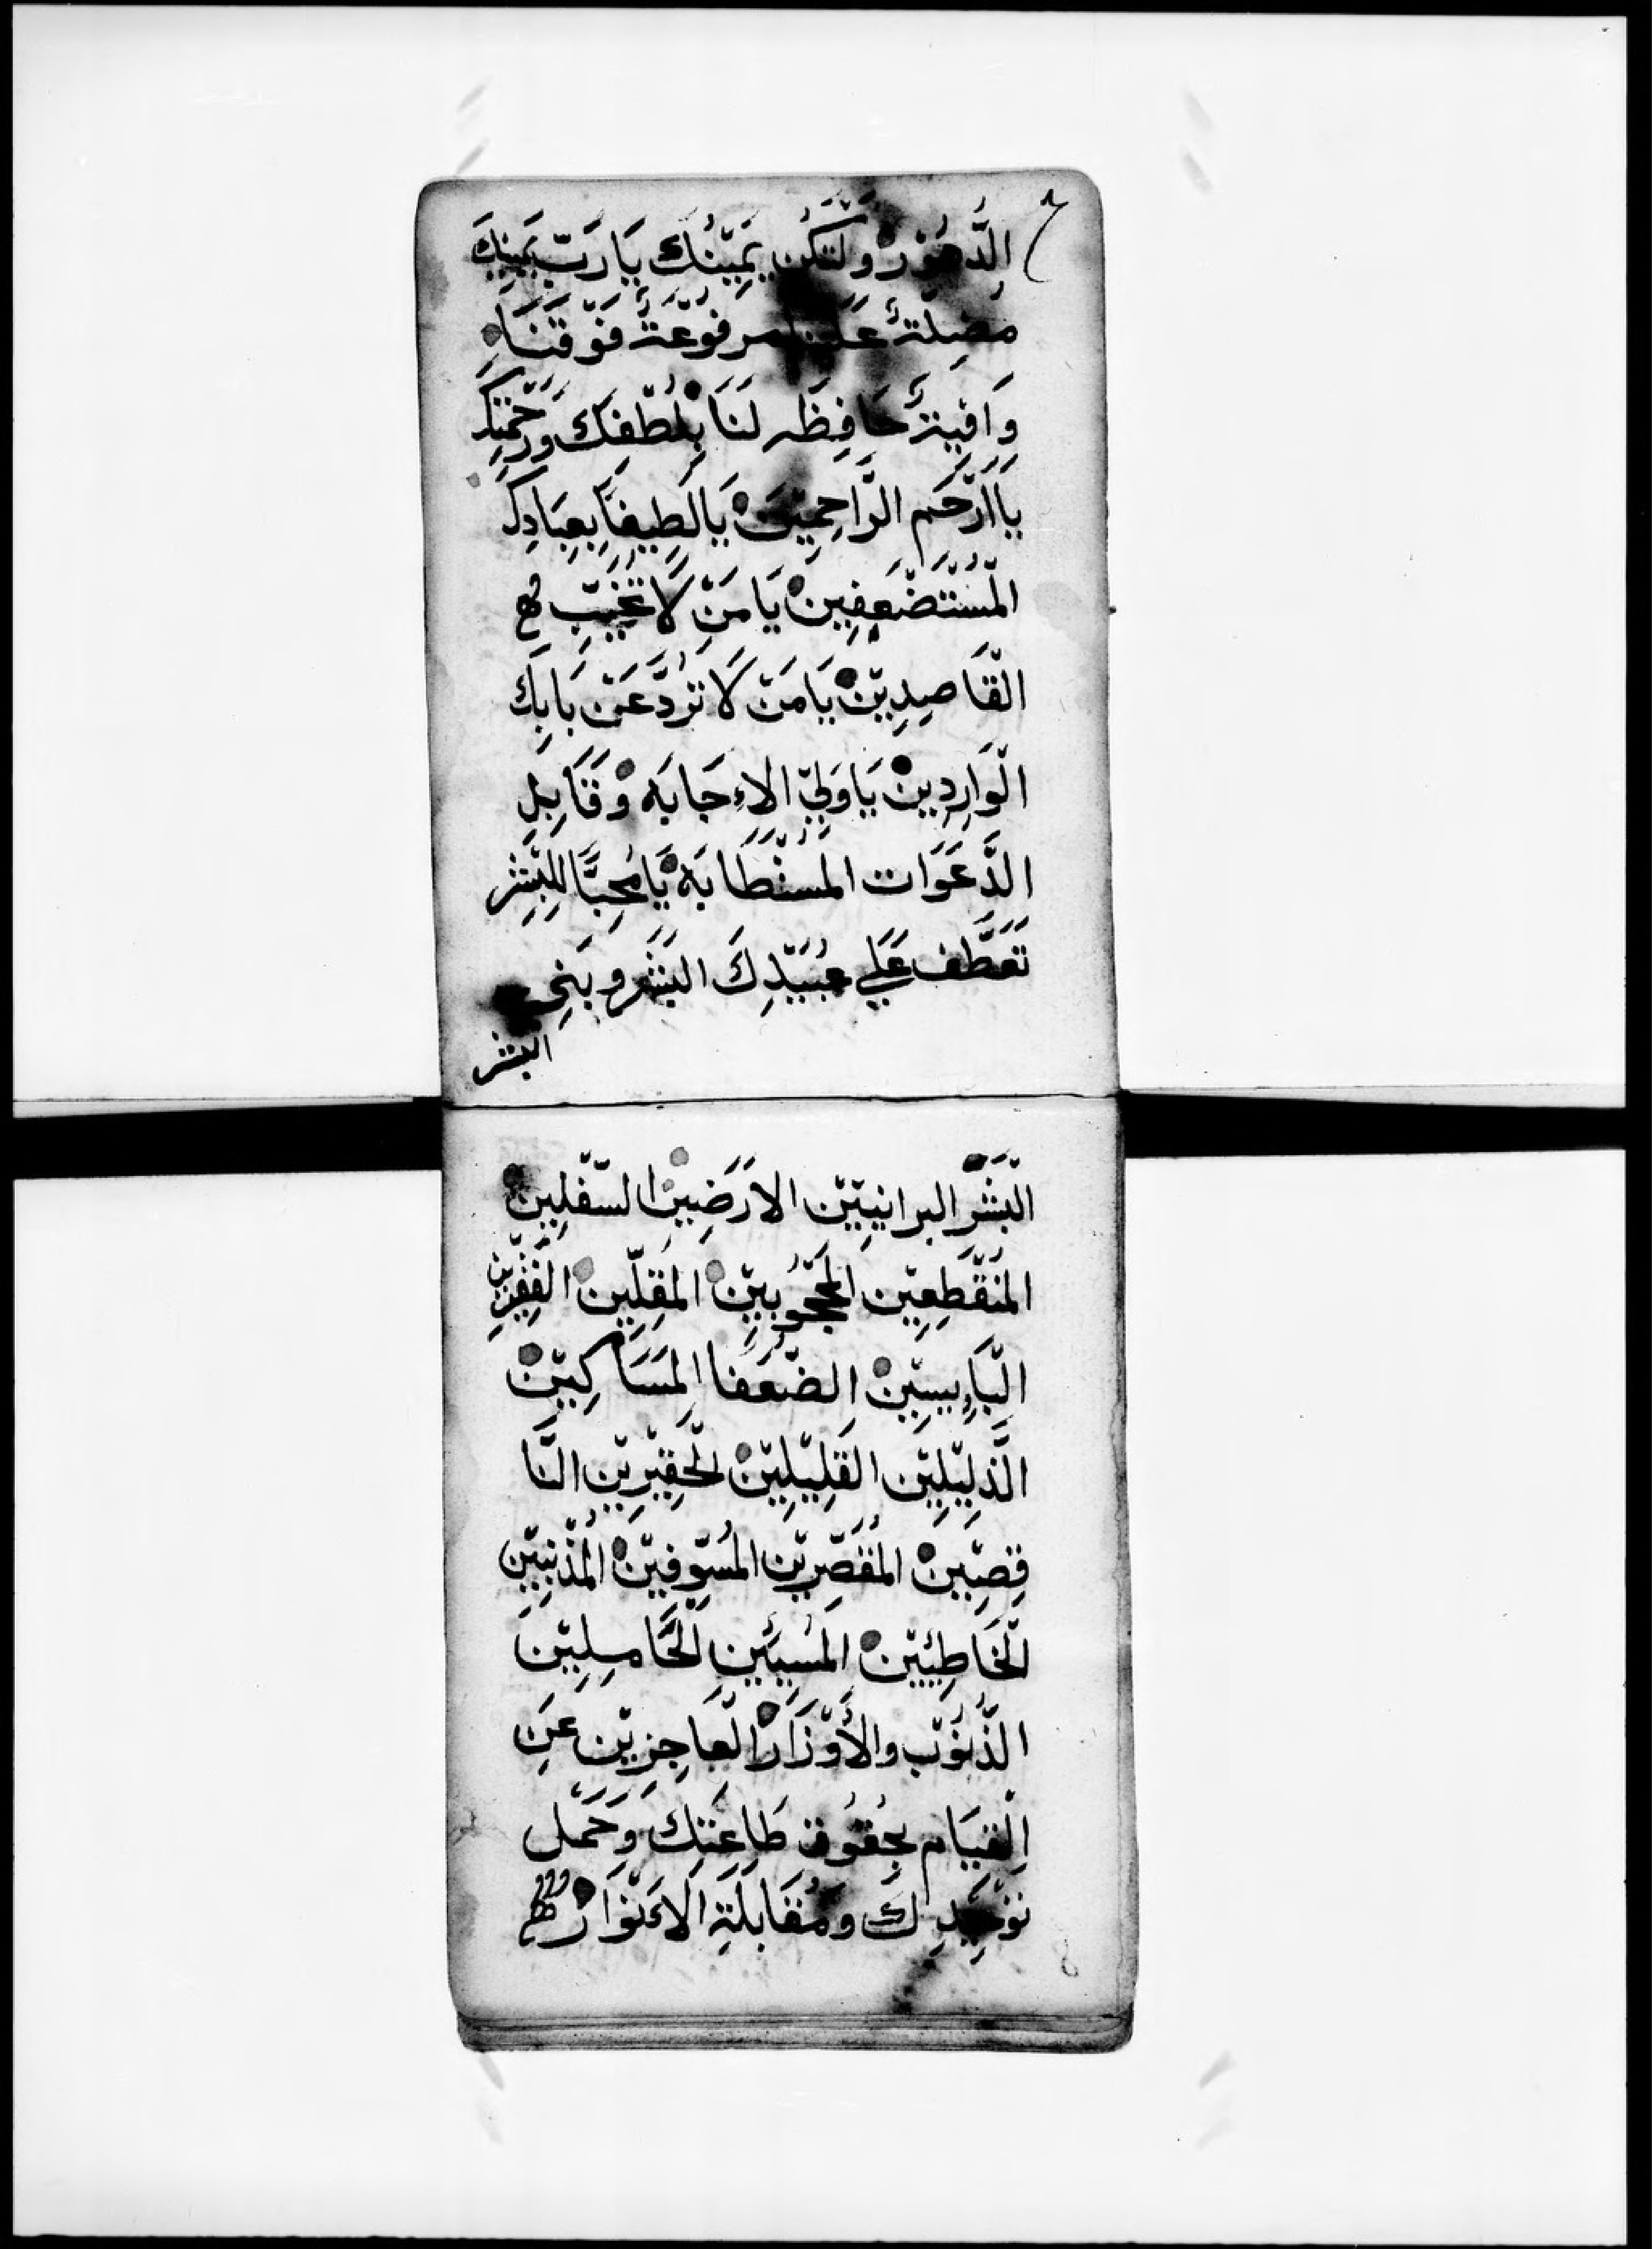 الدُّهُوْرْ وَلَتَكُن يَمِيْنُكَ يَا رَبّ يَمِينِكَ
مُضِلَّةً عَلَيْنا مرفُوْعَة فَوْقَنَا
وَاقِيَةً حَافِظَه لَنَا بِلُطْفِكَ وَرَحْمَتِكَ
يَا ارْحَم الرَّاحِمِيْنْ يَا لَطِيفًا بِعِبَادِكَ
المُسْتَضْعَفِيْنْ يَا مَنْ لَا تُخَيِّبِ
القَاصِدِيْنْ يَا مَنْ لَا تَرُدّ عَنْ بَابِكَ
الْوَارِدِيْنْ يَا وَلِيّ الاءِجَابَه وَقَابِلِ
الدَّعَوَات المُسْتَطَابَهْ يَا مُحِبًّا لِلْبَشَر
تَعَطَّف عَلَي عَبِيْدِكَ البَشَر وبَنِي
البشر
البَشَر البرانيِيْن الارَضِييْن السّفْلِيين
المُنْقَطِعِيْن المَحْجُوْبِيْنْ المُقِلِّيْن الفَقِرين
البَاءِيسِيْنْ الضُّعَفا المَسَاكِيْنْ
الذَّلِيْلِيْن القَلِيْلِيْنْ الحَقِيْرِيْن النَّا
قِصِيْيْنْ المُقَصِّرِيْن المُسَوِّفِيْنْ المُذْنِبِيْن
الْخَاطِئِيْنْ المُسِيئين الْحَامِلِيْنَ
الذُّنُوْب والأَوْزَارْ العَاجِزِيْن عَن
القِيَام بِحُقُوق طَاعَتِكَ وَحَمْل
تَوْحِيدِكَ وَمُقَابَلَةِ الاءَنْوَارْ
8